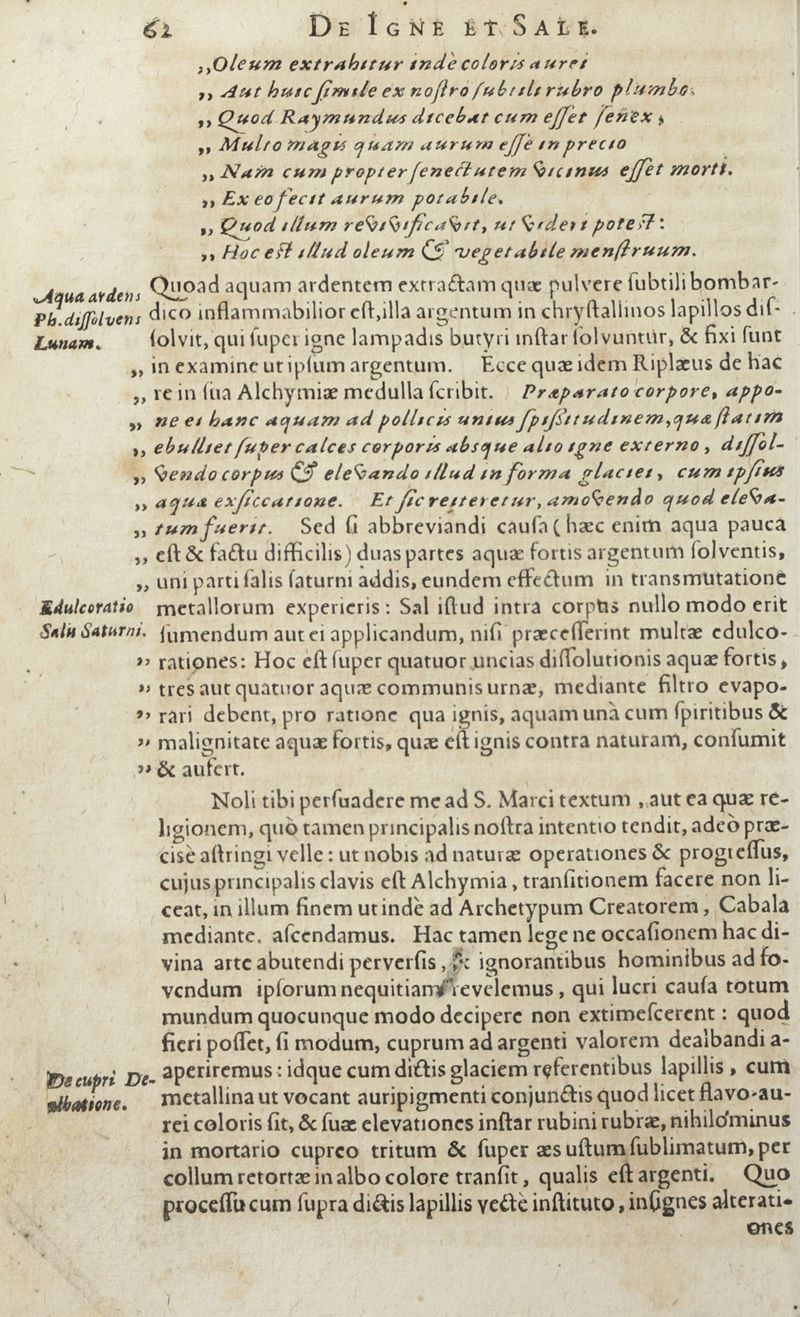 62 DE IGNE ET SALE.
,,Oleum extrahitur inde coloris aurei
,, Aut huic ſimile ex noſtro ſubtili rubro plumbo,
,, Quod Raymundus dicebat cum eſſet ſenex ;
,, Multo magis quàm aurum eſſe in precio
,, Nam cum propter ſenectutem vicinus eſſet morti.
,, Ex eo fecit aurum potabile.
,, Quod illum revivificavit, ut videri poteſt:
,, Hoc eſt illud oleum & vegetabile menſtruum.
Aqua ardens Quoad aquam ardentem extractam quæ pulvere ſubtili bombar-
Ph. diſſolvens dico inflammabilior eſt, illa argentum in chryſtallinos lapillos diſ-
Lunam. ſolvit, qui ſuper igne lampadis butyri inſtar ſolvuntur, & fixi ſunt
,, in examine ut ipſum argentum. Ecce quæ idem Riplæus de hac
,, re in ſua Alchymiæ medulla ſcribit. Præparato corpore, appo-
,, ne ei hanc aquam ad pollicis unius ſpiſsitudinem, quæ ſtatim
,, ebulliet ſuper calces corporis absque alio igne externo, diſſol-
,, vendo corpus & elevando illud in forma glaciei, cum ipſius
,, aquæ exſiccatione. Et ſic reiteretur, amovendo quod eleva-
,, tum fuerit. Sed ſi abbreviandi cauſa (hæc enim aqua pauca
,, eſt & factu difficilis) duas partes aquæ fortis argentum ſolventis,
,, uni parti ſalis ſaturni addis, eundem effectum in transmutatione
Edulcoratio metallorum experieris: Sal iſtud intra corpus nullo modo erit
Salis Saturni. ſumendum aut ei applicandum, niſi præceſſerint multæ edulco-
,, rationes: Hoc eſt ſuper quatuor uncias diſſolutionis aquæ fortis,
,, tres aut quatuor aquæ communis urnæ, mediante filtro evapo-
,, rari debent, pro ratione qua ignis, aquam unà cum ſpiritibus &
,, malignitate aquæ fortis, quæ eſt ignis contra naturam, conſumit
,, & aufert.
Noli tibi perſuadere me ad S. Marci textum , aut ea quæ re-
ligionem, quò tamen principalis noſtra intentio tendit, adeò præ-
cisè aſtringi velle: ut nobis ad naturæ operationes & progreſſus,
cujus principalis clavis eſt Alchymia, tranſitionem facere non li-
ceat, in illum finem ut inde ad Archetypum Creatorem, Cabala
mediante. aſcendamus. Hac tamen lege ne occaſionem hac di-
vina arte abutendi perverſis, & ignorantibus hominibus ad fo-
vendum ipſorum nequitiam revelemus, qui lucri cauſa totum
mundum quocunque modo decipere non extimeſcerent: quod
fieri poſſet, ſi modum, cuprum ad argenti valorem dealbandi a-
De cupri De- aperiremus: idque cum dictis glaciem referentibus lapillis, cum
albatione. metallina ut vocant auripigmenti conjunctis quod licet flavo-au-
rei coloris ſit, & ſuæ elevationes inſtar rubini rubræ, nihilo'minus
in mortario cupreo tritum & ſuper æs uſtum ſublimatum, per
collum retortæ in albo colore tranſit, qualis eſt argenti. Quo
proceſſu cum ſupra dictis lapillis rectè inſtituto, inſignes alterati-
ones